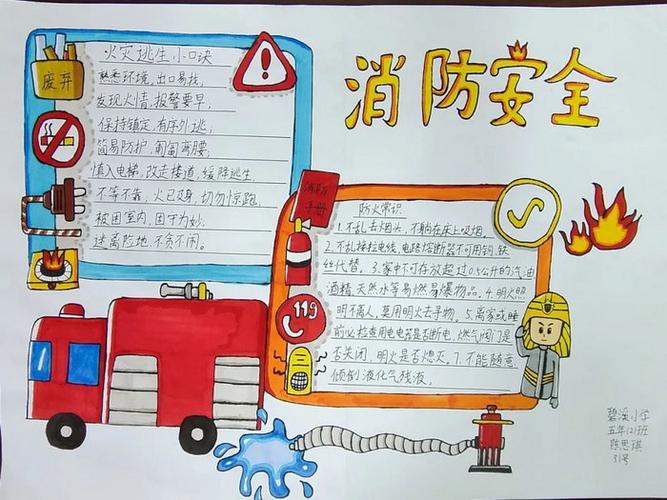 消防安全
废弃
火灾逃生小口诀
熟悉环境,出口易找,
发现火情,报警要早,
保持镇定,有序外逃,
简易防护,匍匐弯腰,
慎入电梯,改走楼道,缓降逃生,
不等不靠,火已及身,切勿惊跑,
被困室内,固守为妙,
速离险地,不贪不闹。
消防
手册
119
防火常识
1.不乱丢烟头,不躺在床上吸烟。
2.不乱接拉电线,电路熔断器不可用铜.铁
丝代替。3.家中不可存放超过0.5公升的汽油
酒精.天然水等易燃易爆物品。4.明火照
明不离人,莫用明火去寻物。5.离家或睡
前必检查用电电器是否断电,燃气阀门是
否关闭,明火是否熄灭。7.不能随意
倾倒液化气残液。
碧溪小学
五年(2)班
陈思琪
31号